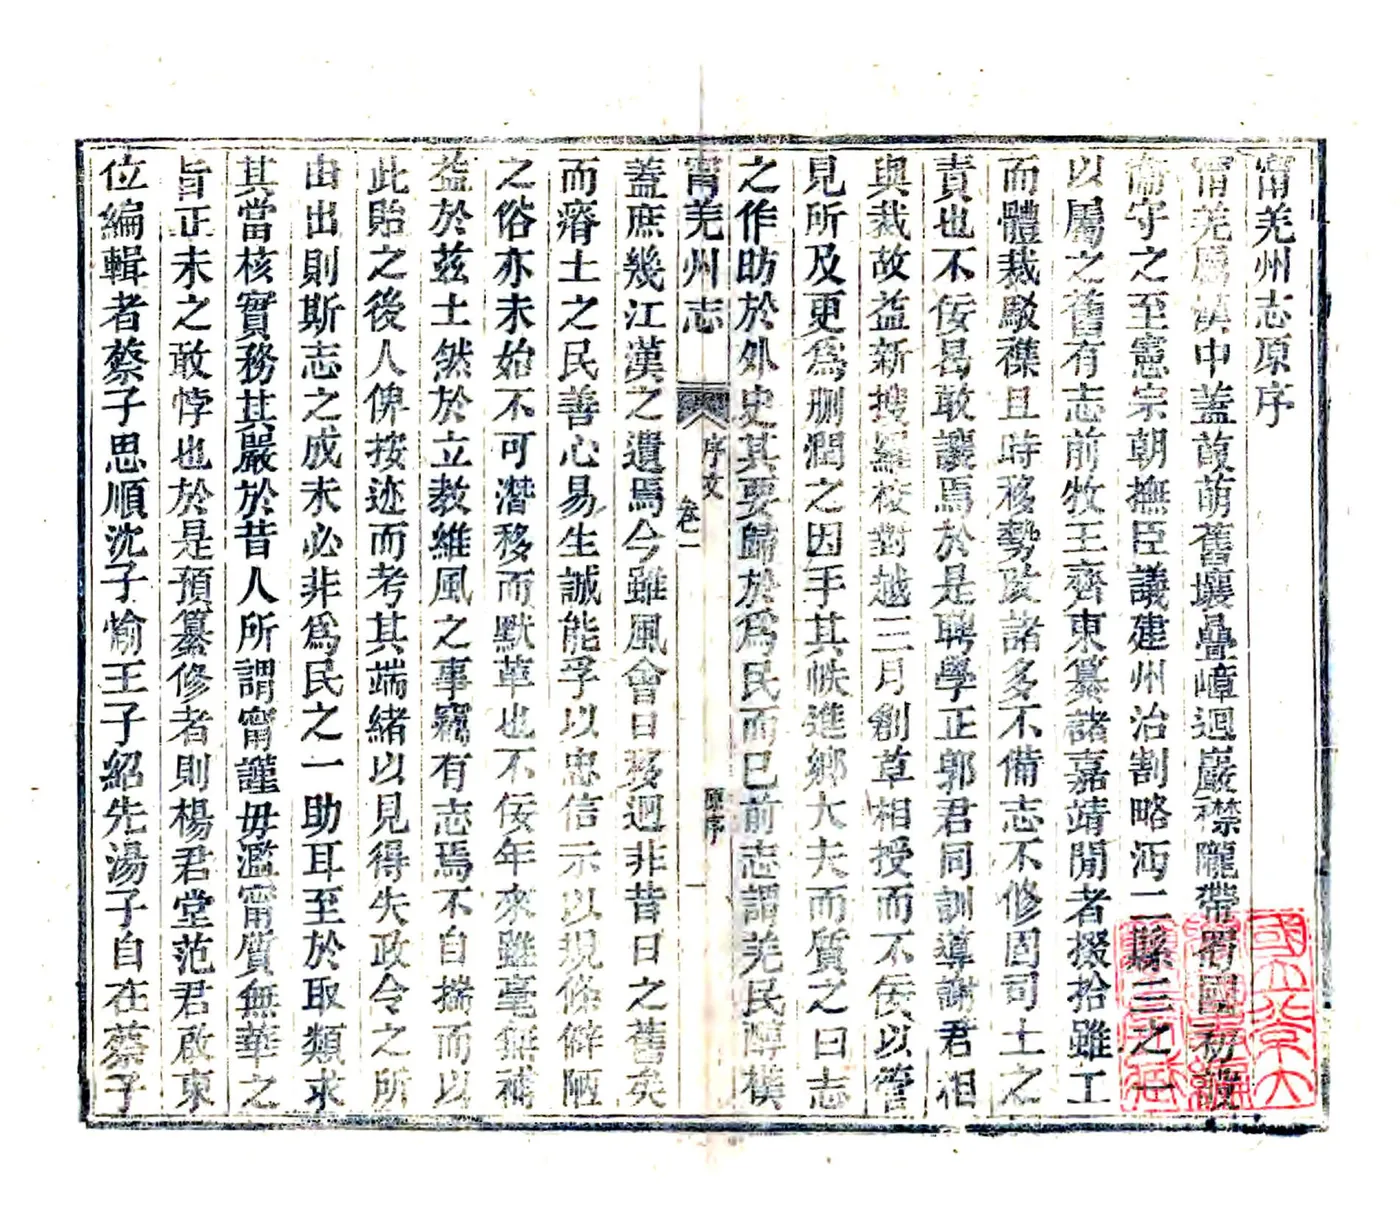 甯羌州志原序
甯羌爲漢中蓋葭萌舊壤疊嶂迴巖襟隴帶蜀國初設
衞守之至憲宗朝撫臣議建州治割略沔二縣三之一
以屬之舊有志前牧王齊東纂諸嘉靖間者掇拾雖工
而體裁駁襍且時移勢改諸多不備志不修固司土之
責也不佞曷敢讓焉於是聘學正郭君同訓導謝君相
與裁故益新搜羅校對越三月創草相授而不佞以管
見所及更爲刪潤之因手其帙進鄉大夫而質之曰志
之作昉於外史其要歸於爲民而已前志謂羌民醇樸
甯羌州志 序文 卷一 原序 一
蓋庶幾江漢之遺焉今雖風會日移迥非昔日之舊矣
而瘠土之民善心易生誠能孚以忠信示以現條僻陋
之俗亦未始不可潛移而默革也不佞年來雖毫無補
益於茲土然於立教維風之事竊有志焉不自揣而以
此貽之後人俾按迹而考其端緒以見得失政令之所
由出則斯志之成未必非爲民之一助耳至於取類求
其當核實務其嚴於昔人所謂甯謹毋濫甯質無華之
旨正未之敢悖也於是預纂修者則楊君堂范君啟東
位編輯者蔡子思順沈子愉王子紹先湯子自在蔡子
國立北京大